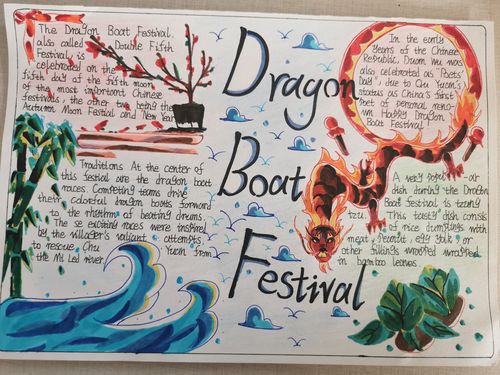 The Dragon Boat Festival,
also called Double Fifth
Festival, is
celebrated on the
fifth day of the fifth moon
of the most important Chinese
festivals, the other two being the
Autumn Moon Festival and New Year
Dragon
Boat
Festival
In the early
Years of the Chinese
Republic, Duan Wu was
also celebrated as "Poets'
Day", due to Qu Yuan's
status as China's first
poet of personal renown
Happy Dragon
Boat Festival!
Traditions At the center of
this festival are the dragon boat
races. Competing teams drive
their colorful dragon boats forward
to the rhythm of beating drums.
The se exciting races were inspired
by the villager's valiant attempts
to rescue Chu Yuan from
the Mi Lo river
A very popul-ar
dish during the Dragon
Boat festival is tzung
tzu. This tasty dish consis
of rice dumplings with
meat, peanut, egg yolk or
other fillings wrapped wrapped
in bamboo leaves.